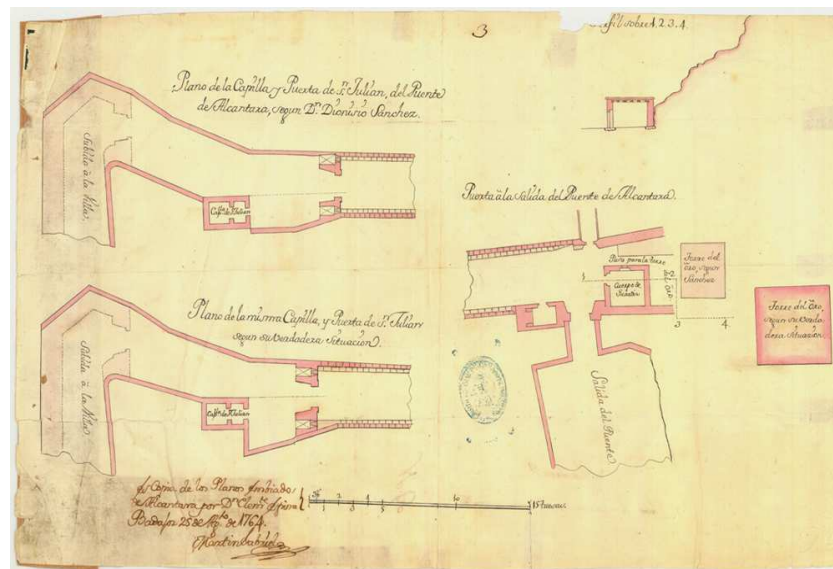 3
Perfil sobre 1. 2. 3. 4.
Plano de la Capilla, y Puerta de Sn. Julian, del Puente
de Alcantara, segun Dn. Dionisio Sánchez.
Subida à la Villa.
Capa. de Sn. Julian
Puerta à la Salida del Puente de Alcantara.
Paso para la Torre
del Oro
Cuerpo de
Guardia
1
2
3
4
Torre del
Oro, segun
Sánchez
Torre del Oro,
segun su verda
dera Situacion
Salida del Puente
Plano de la misma Capilla, y Puerta de Sn. Julian
segun su verdadera Situacion.
Subida à la Villa
Capa. de Sn. Julian
Es Copia de los Planos embiados
de Alcantara por Dn.
Badajoz 25 de Agto. de 1764.
Martin Gabriel
1
2
3
4
5
10
15 tuesas